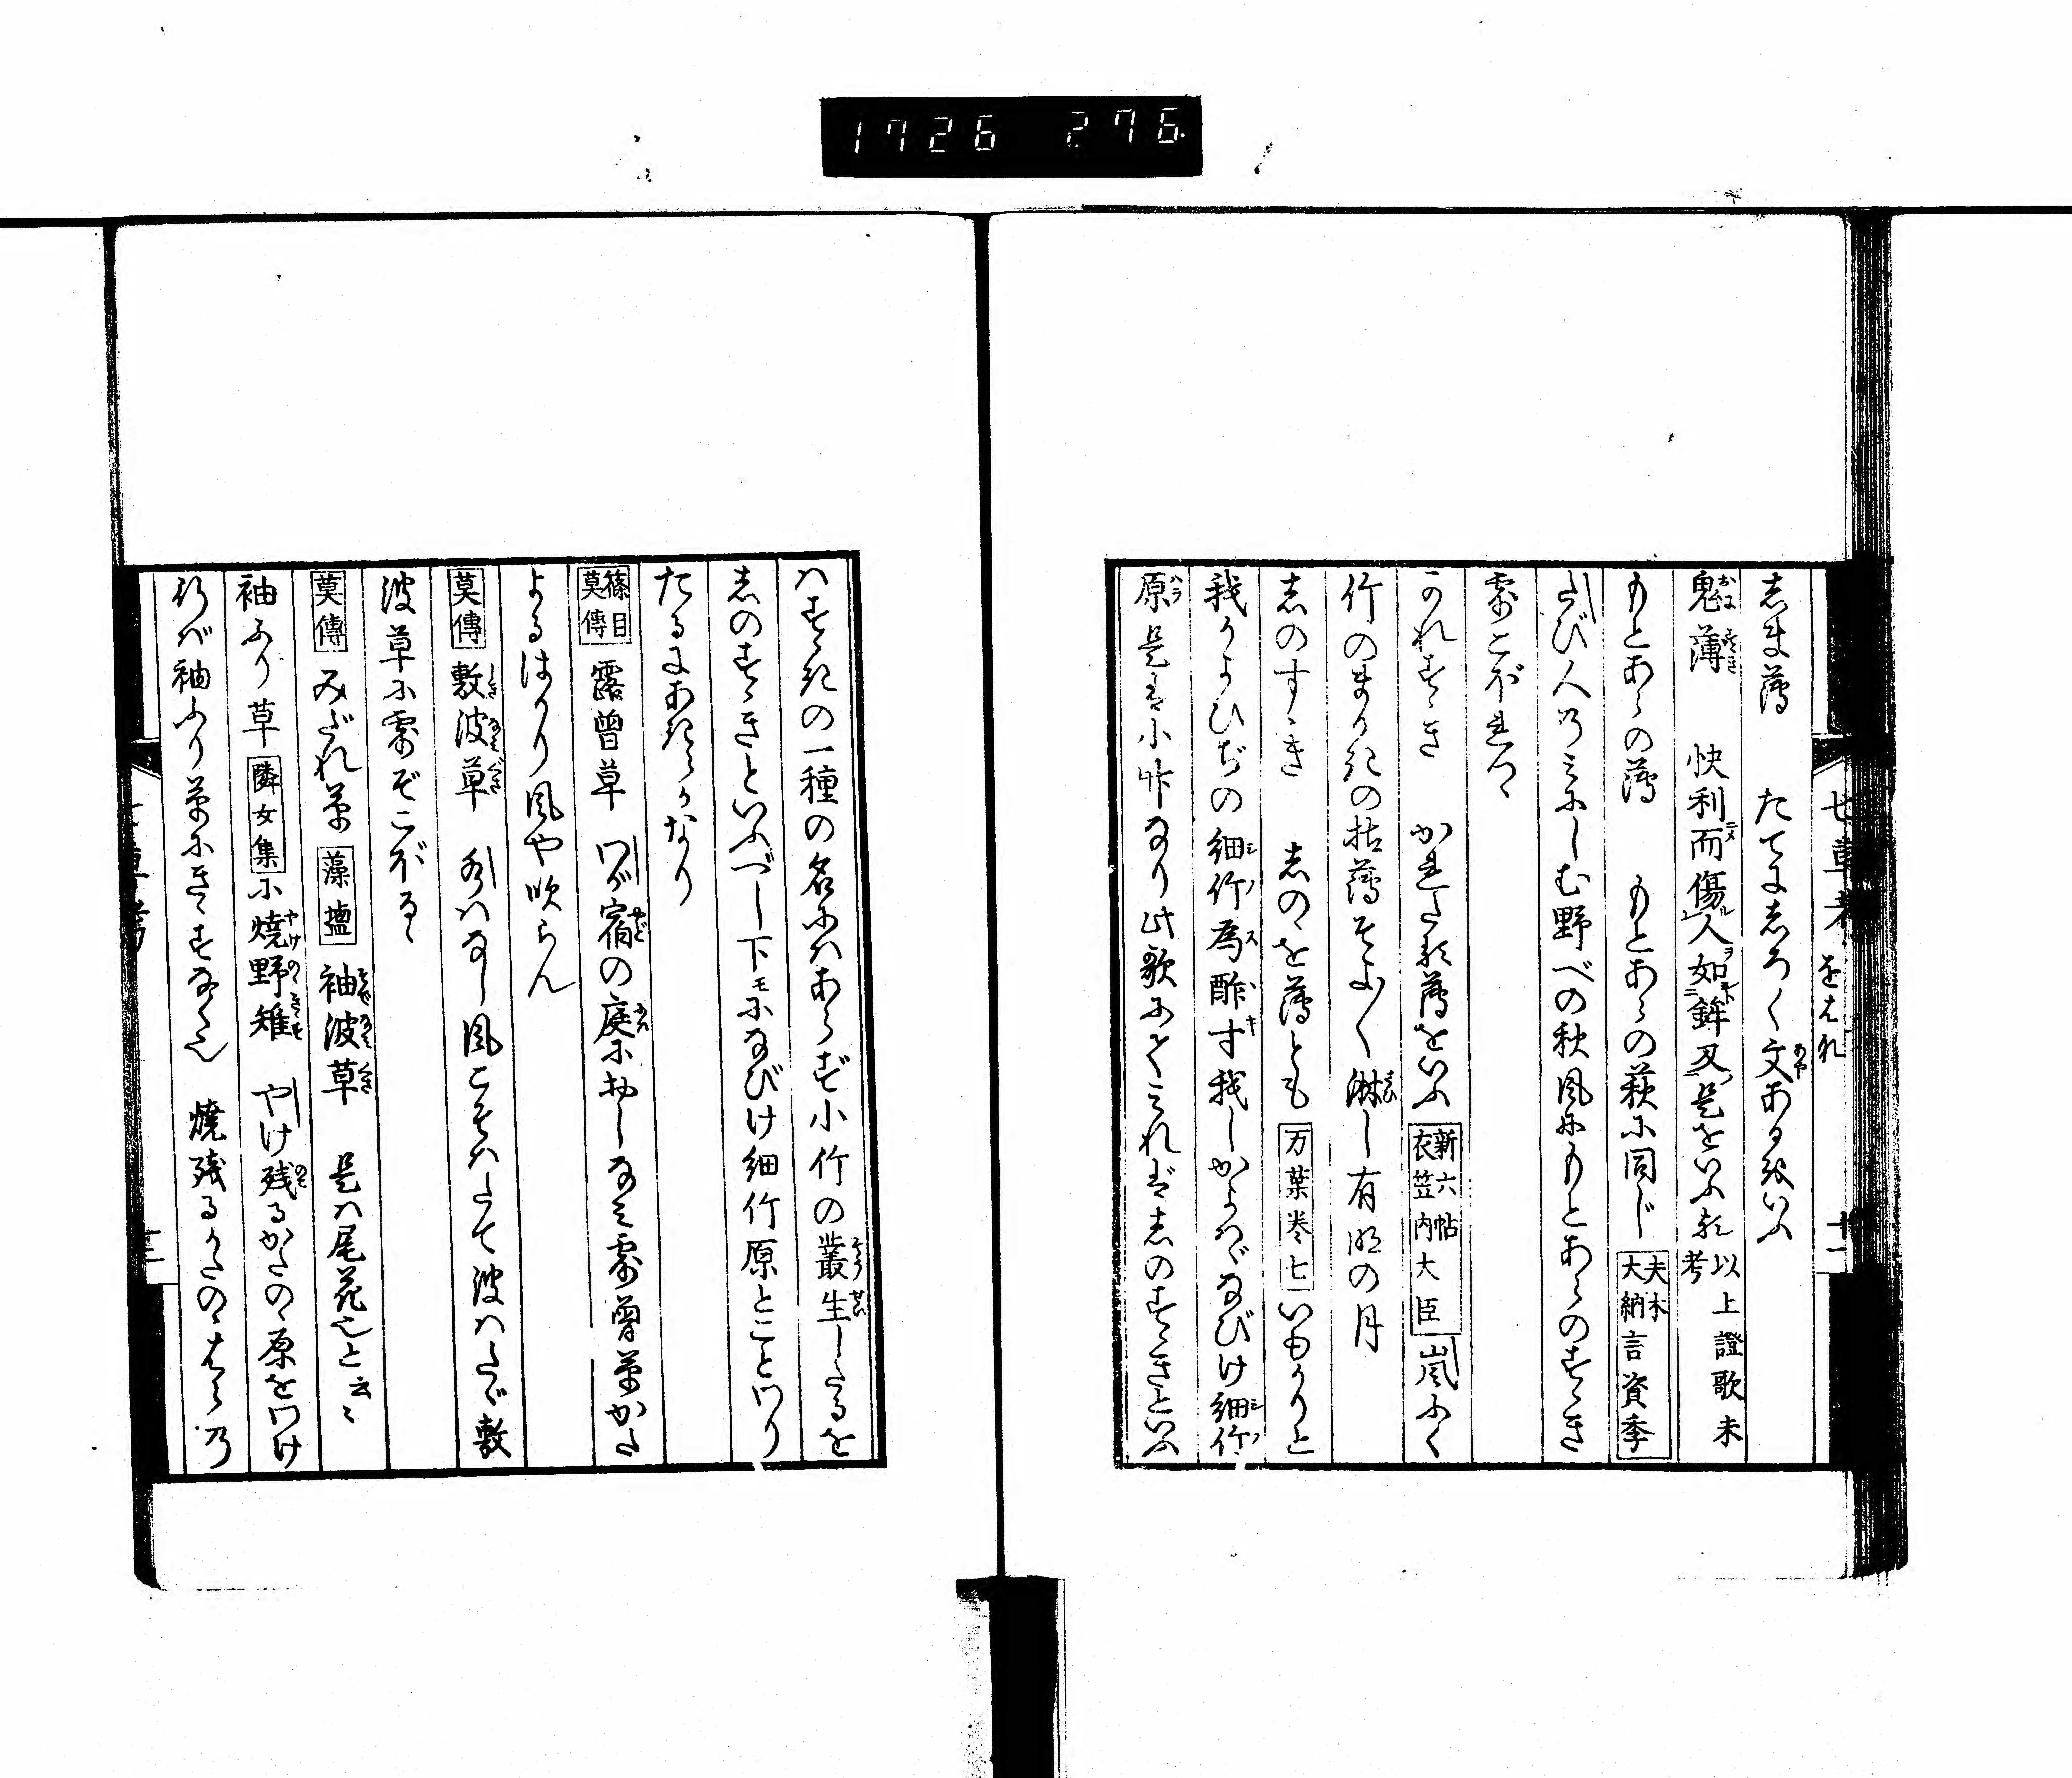 1726 276.
七草考 をばな 十一
志ま薄 たてに志ろく文あるをいふ
鬼薄 快利而傷人如鉾刄是をいふ歟 以上證歌未考
もとあらの薄 もとあらの萩に同じ 夫木 大納言資季
さびしむ野べの秋風にもとあらのすゝき
露こぼれつゝ
かれすゝき かれたる薄をいふ 新六帖 衣笠内大臣 嵐ふく
竹のまがきの枯薄そよ〱淋し有明の月
志のすゝき 志のゝを薄とも 万葉巻七 いもがりと
我かよひぢの細竹為酢寸我しかよはゞなびけ細竹
原 是は小竹なり此歌によれば志のすゝきといふ
ハすゝきの一種の名にハあらず小竹の叢生したるを
志のすゝきといふべし下モになびけ細竹原とことわり
たるにあきらかなり
篠目 莫傳 露曽草 わが宿の庭におしなみ露曽草かた
よるはかり風や吹らん
莫傳 敷波草 秋ハなし風こそハたて波ハたゞ敷
波草に露ぞこぼるゝ
莫傳 みだれ草 藻塩 袖波草 是ハ尾花也と云々
袖ふり草 隣女集 に焼野雉 やけ残るかたのゝ原をわけ
行バ袖ふり草にきゞすなく也 焼残るかたのゝはらの
七草考